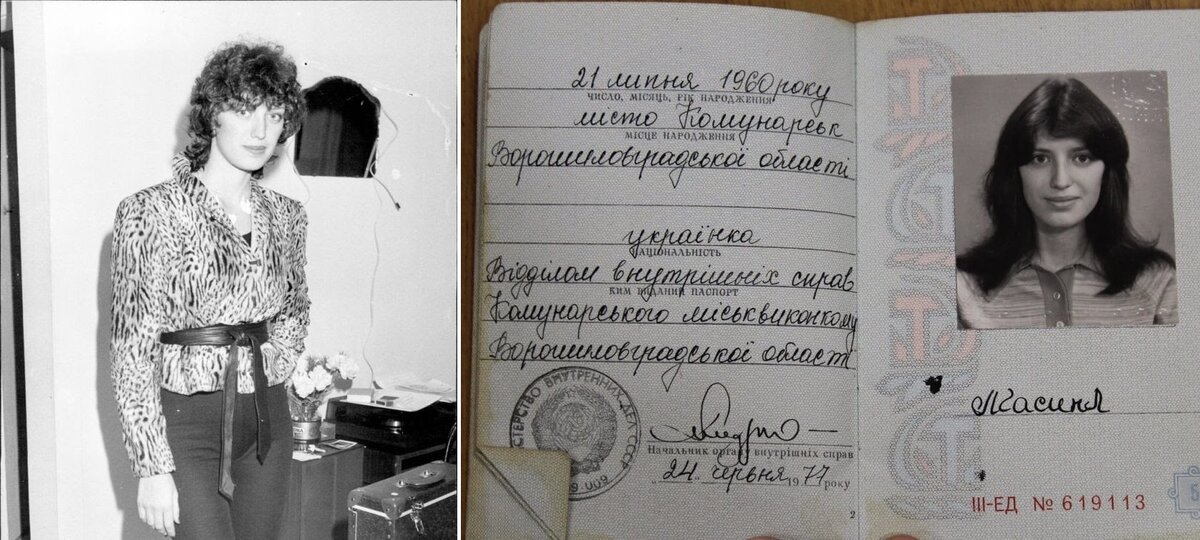 21 липня 1960 року
ЧИСЛО, МІСЯЦЬ, РІК НАРОДЖЕННЯ
місто Комунарськ
МІСЦЕ НАРОДЖЕННЯ
Ворошиловградської області
українка
НАЦІОНАЛЬНІСТЬ
Відділом внутрішніх справ
КИМ ВИДАНИЙ ПАСПОРТ
Комунарського міськвиконкому
Ворошиловградської області
МИНИСТЕРСТВО ВНУТРЕННИХ ДЕЛ СССР
Начальник органу внутрішніх справ
24 червня 1977 року
2
III-ЕД № 619113